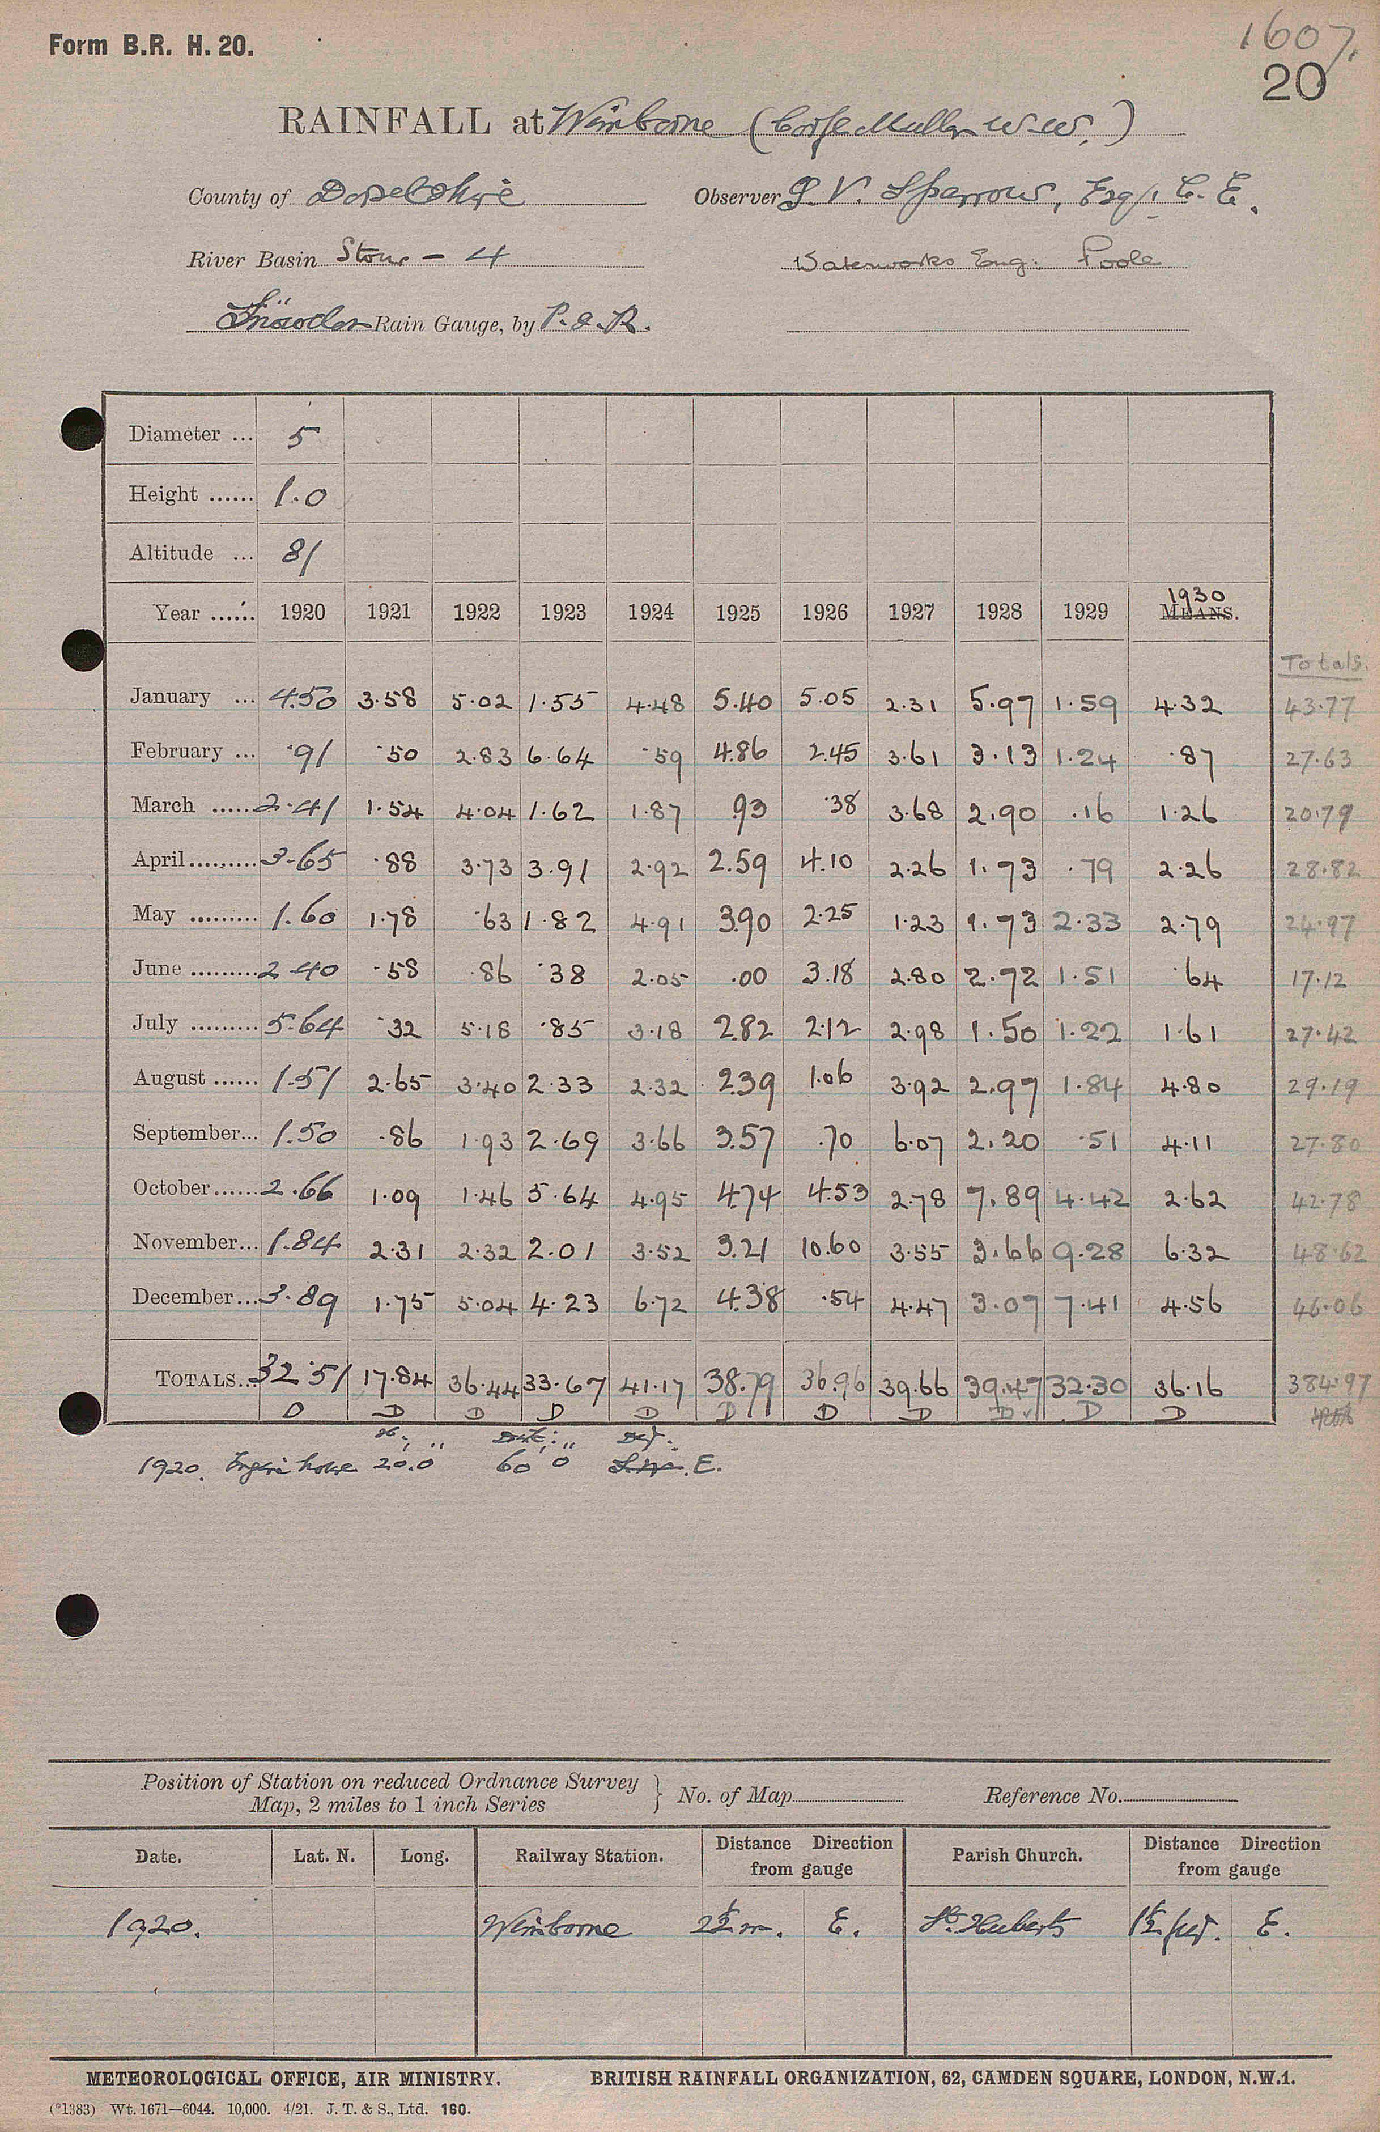 Form B.R. H. 20.
1607.
20
RAINFALL at Wimborne (Corfe Mullen W.W.)
County of Dorsetshire Observer S. V. Sparrow, Esq., C.E.
River Basin Stour - 4 Waterworks Eng. Poole
Snowdon Rain Gauge, by P. & R.
Diameter ... 5
Height ...... 1.0
Altitude ... 81
Year ...... 1920 1921 1922 1923 1924 1925 1926 1927 1928 1929 1930 MEANS.
Totals.
January ... 4.50 3.58 5.02 1.55 4.48 5.40 5.05 2.31 5.97 1.59 4.32 43.77
February ... .91 .50 2.83 6.64 .59 4.86 2.45 3.61 3.13 1.24 .87 27.63
March ..... 2.41 1.54 4.04 1.62 1.87 .93 .38 3.68 2.90 .16 1.26 20.79
April ......... 3.65 .88 3.73 3.91 2.92 2.59 4.10 2.26 1.73 .79 2.26 28.82
May ......... 1.60 1.78 .63 1.82 4.91 3.90 2.25 1.23 1.73 2.33 2.79 24.97
June ......... 2.40 .58 .86 .38 2.05 .00 3.18 2.80 2.72 1.51 .64 17.12
July ......... 5.64 .32 5.18 .85 3.18 2.82 2.12 2.98 1.50 1.22 1.61 27.42
August ...... 1.51 2.65 3.40 2.33 2.32 2.39 1.06 3.92 2.97 1.84 4.80 29.19
September... 1.50 .86 1.93 2.69 3.66 3.57 .70 6.07 2.20 .51 4.11 27.80
October...... 2.66 1.09 1.46 5.64 4.95 4.74 4.53 2.78 7.89 4.42 2.62 42.78
November... 1.84 2.31 2.32 2.01 3.52 3.21 10.60 3.55 3.66 9.28 6.32 48.62
December... 3.89 1.75 5.04 4.23 6.72 4.38 .54 4.47 3.07 7.41 4.56 46.06
TOTALS... 32.51 17.84 36.44 33.67 41.17 38.79 36.96 39.66 39.47 32.30 36.16 384.97
D D D D D D D D D D D
1920. Engine house 20'.0" 60' 0" E.
Position of Station on reduced Ordnance Survey
Map, 2 miles to 1 inch Series } No. of Map Reference No.
Date. Lat. N. Long. Railway Station. Distance Direction from gauge Parish Church. Distance Direction from gauge
1920. Wimborne 2½ m. E. St. Huberts 1½ fur. E.
METEOROLOGICAL OFFICE, AIR MINISTRY. BRITISH RAINFALL ORGANIZATION, 62, CAMDEN SQUARE, LONDON, N.W.1.
(*1383) Wt. 1671—6044. 10,000. 4/21. J. T. & S., Ltd. 160.